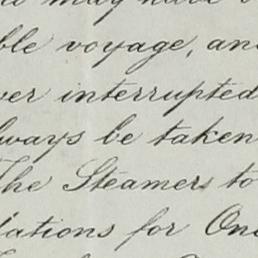 may have
ble voyage, and
ver interrupted
lways be taken
The Steamers to
lations for One